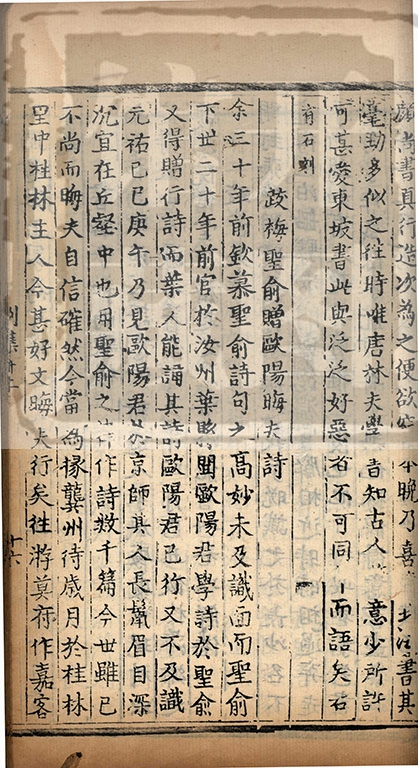 尚書真行造次為之便欲 中晚乃喜 北海書其
毫勁多似之往時唯唐林夫學書知古人 意少所許
可甚愛東坡書此與泛泛好惡者不可同 而語矣右
有石刻
跋梅聖俞贈歐陽晦夫詩
余三十年前欽慕聖俞詩句之高妙未及識面而聖俞
下世二十年前官於汝州葉縣聞歐陽君學詩於聖俞
又得贈行詩而葉人能誦其詩歐陽君已行又不及識
元祐己巳庚午乃見歐陽君於京師其人長鬣眉目深
沉宜在丘壑中也用聖俞之 作詩数千篇今世雖已
不尚而晦夫自信確然今當為掾龔州待歲月於桂林
里中桂林主人今甚好文晦夫行矣往游莫府作嘉客
十六